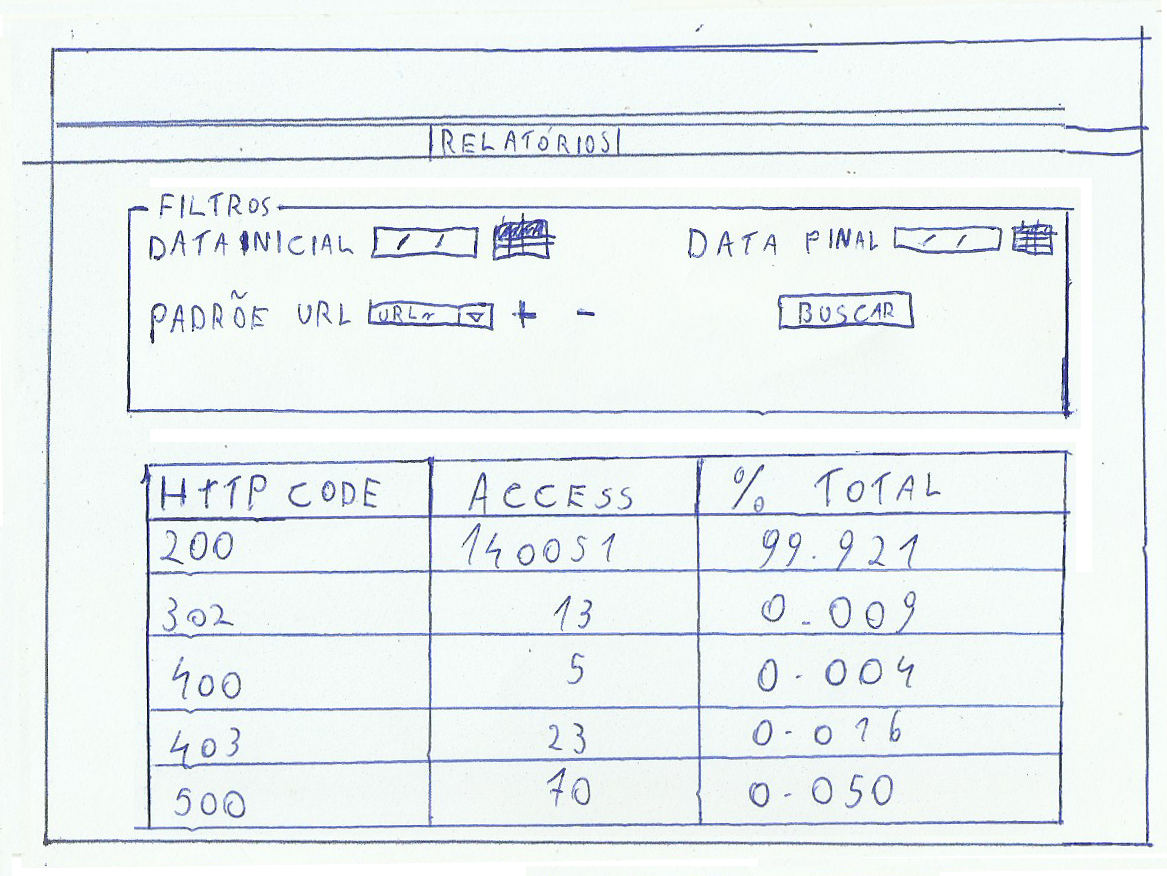 RELATÓRIOS
FILTROS
DATA INICIAL / / DATA FINAL / /
PADRÕE URL URL~ + - BUSCAR
HTTP CODE ACCESS % TOTAL
200 140051 99.921
302 13 0.009
400 5 0.004
403 23 0.016
500 70 0.050